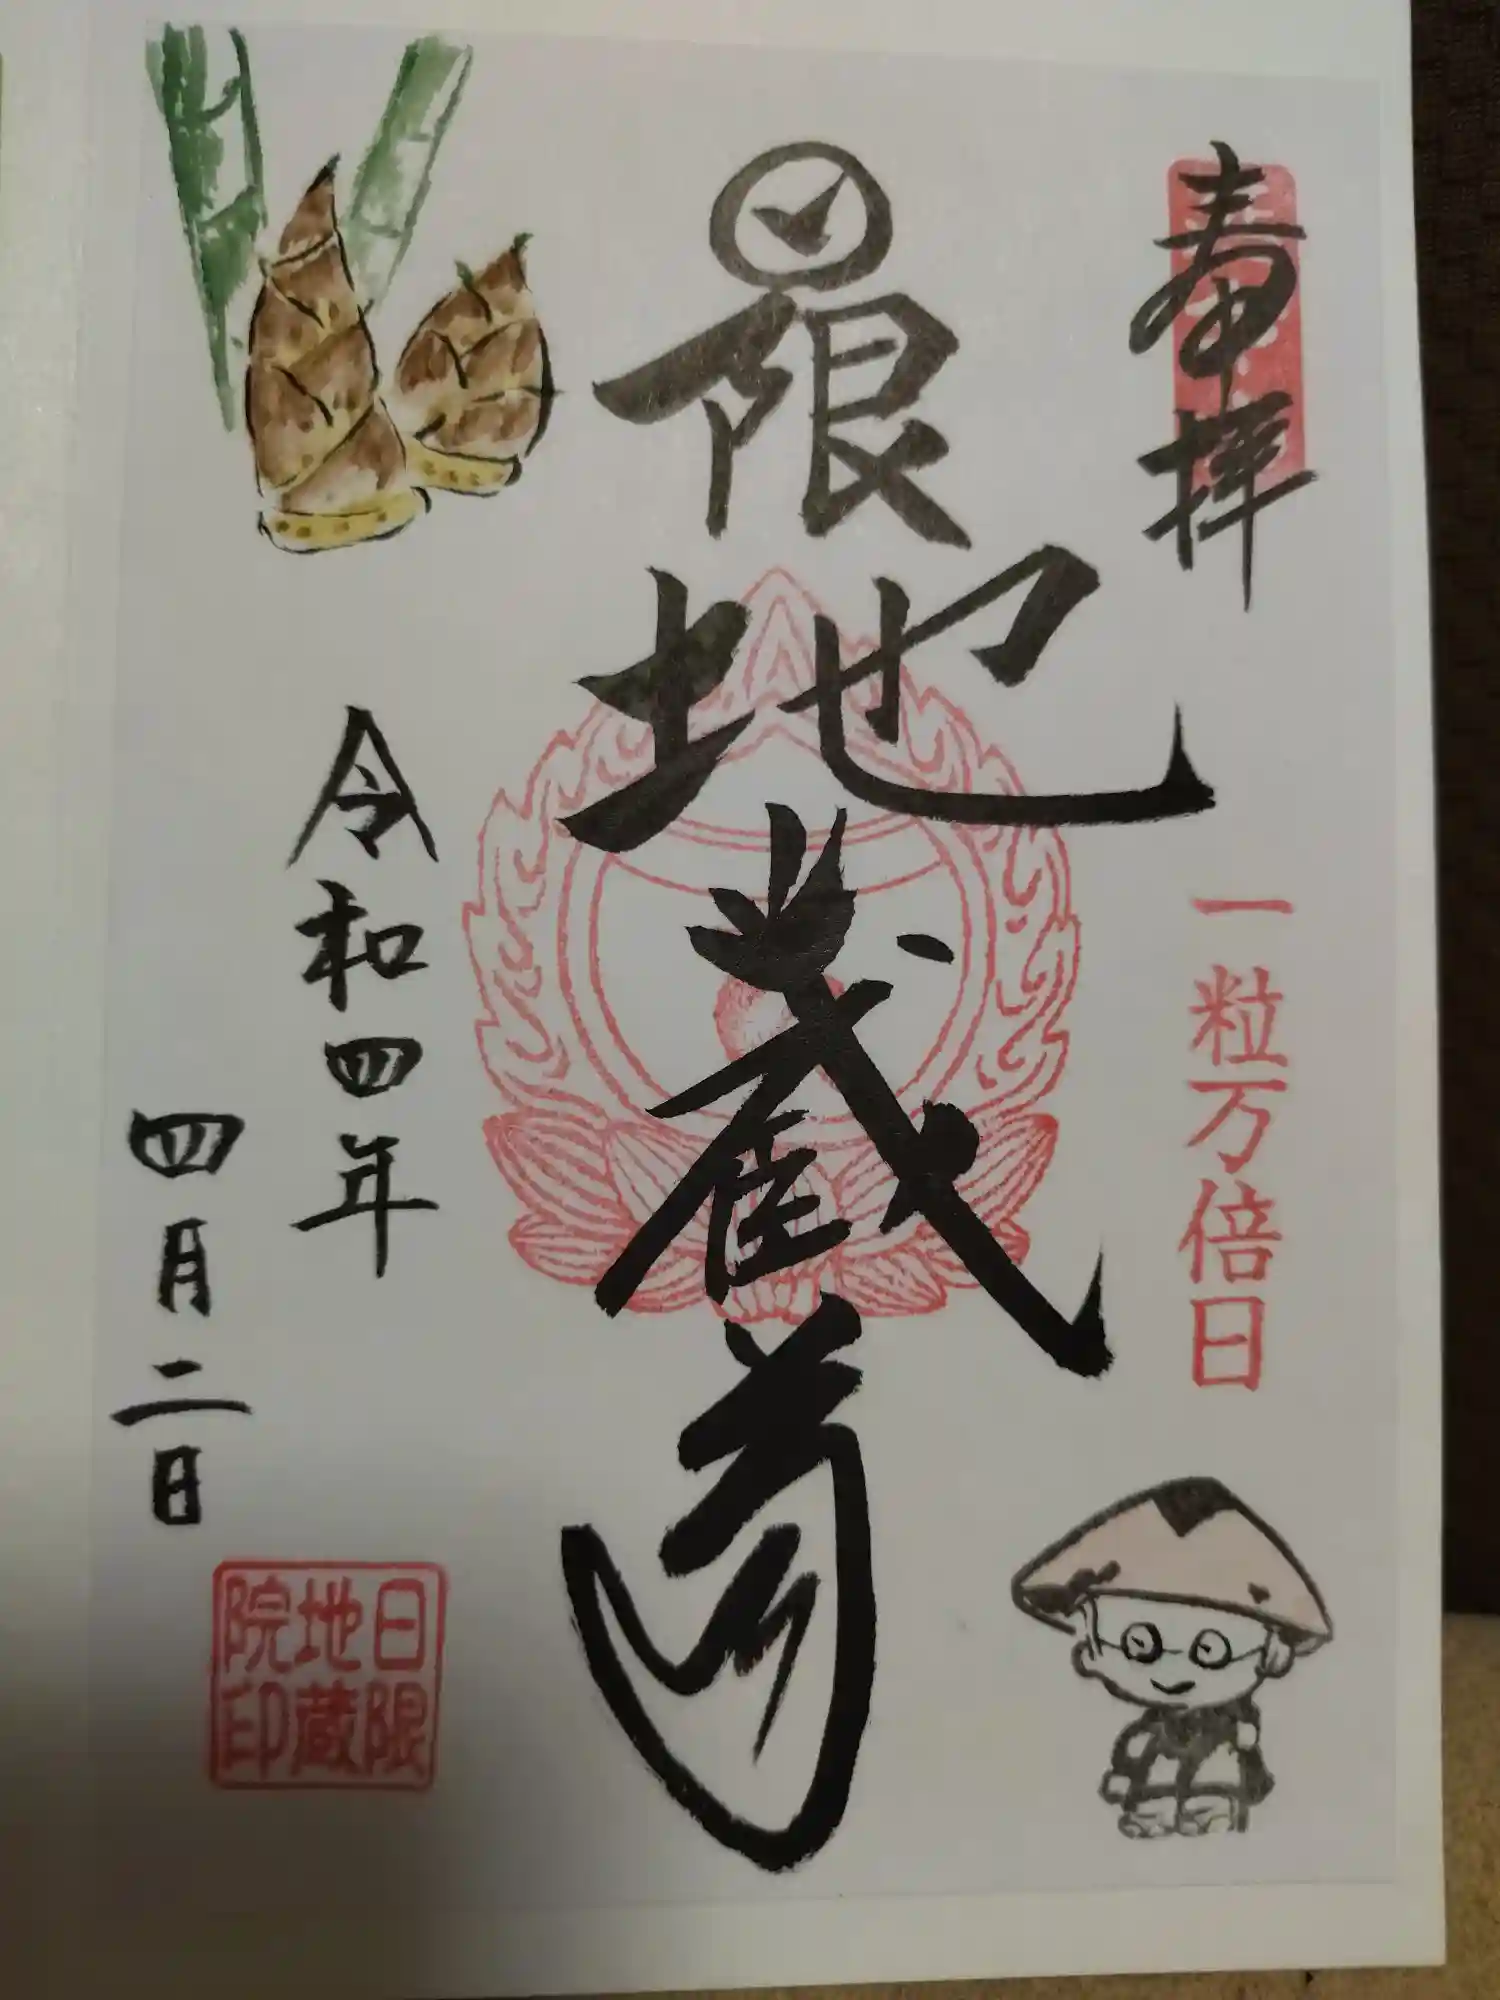 奉拝
一粒万倍日
日限地蔵尊
令和四年
四月二日
日限
地蔵
院印